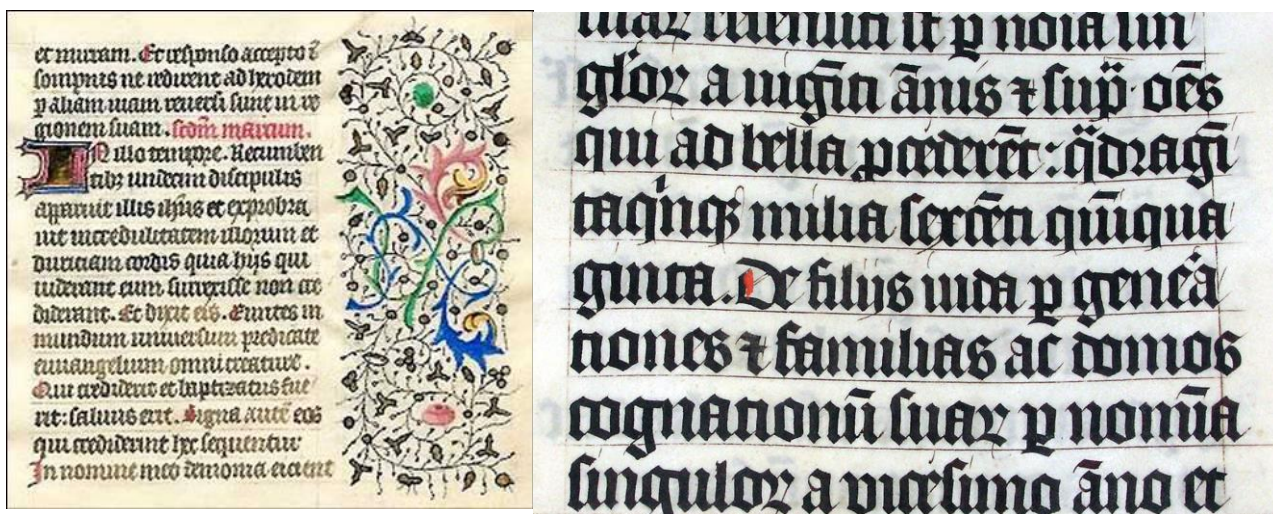 et mirram. Et responso accepto ī
sompnis ne redirent ad herodem
ꝑ aliam uiam reuersi sunt in re
gionem suam. scdm marcum.
IN illo tempore. Recumben
tibꝫ undecim discipulis
apparuit illis ihūs et exprobra
uit incredulitatem illorum et
duriciam cordis quia hijs qui
uiderant eum surrexisse non cre
diderant. Et dixit eis. Euntes in
mundum uniuersum predicate
euuangelium omni creature.
Qui crediderit et baptizatus fue
rit: saluus erit. Signa autē eos
qui crediderint hec sequentur
In nomine meo demonia eicient
ſuaꝝ recenſiti ſt ꝑ noīa ſin
gloꝝ a uigīti ānis ⁊ ſup̄. oēs
qui ad bella ꝓcederēt: q̄dragī
taq̇nqꝫ milia ſexcēti q̄uīqua
ginta. De filijs iuda ꝑ gene͛a
tiones ⁊ familias ac domos
cognationū ſuaꝝ ꝑ nomīa
ſinguloꝝ a viceſimo āno et